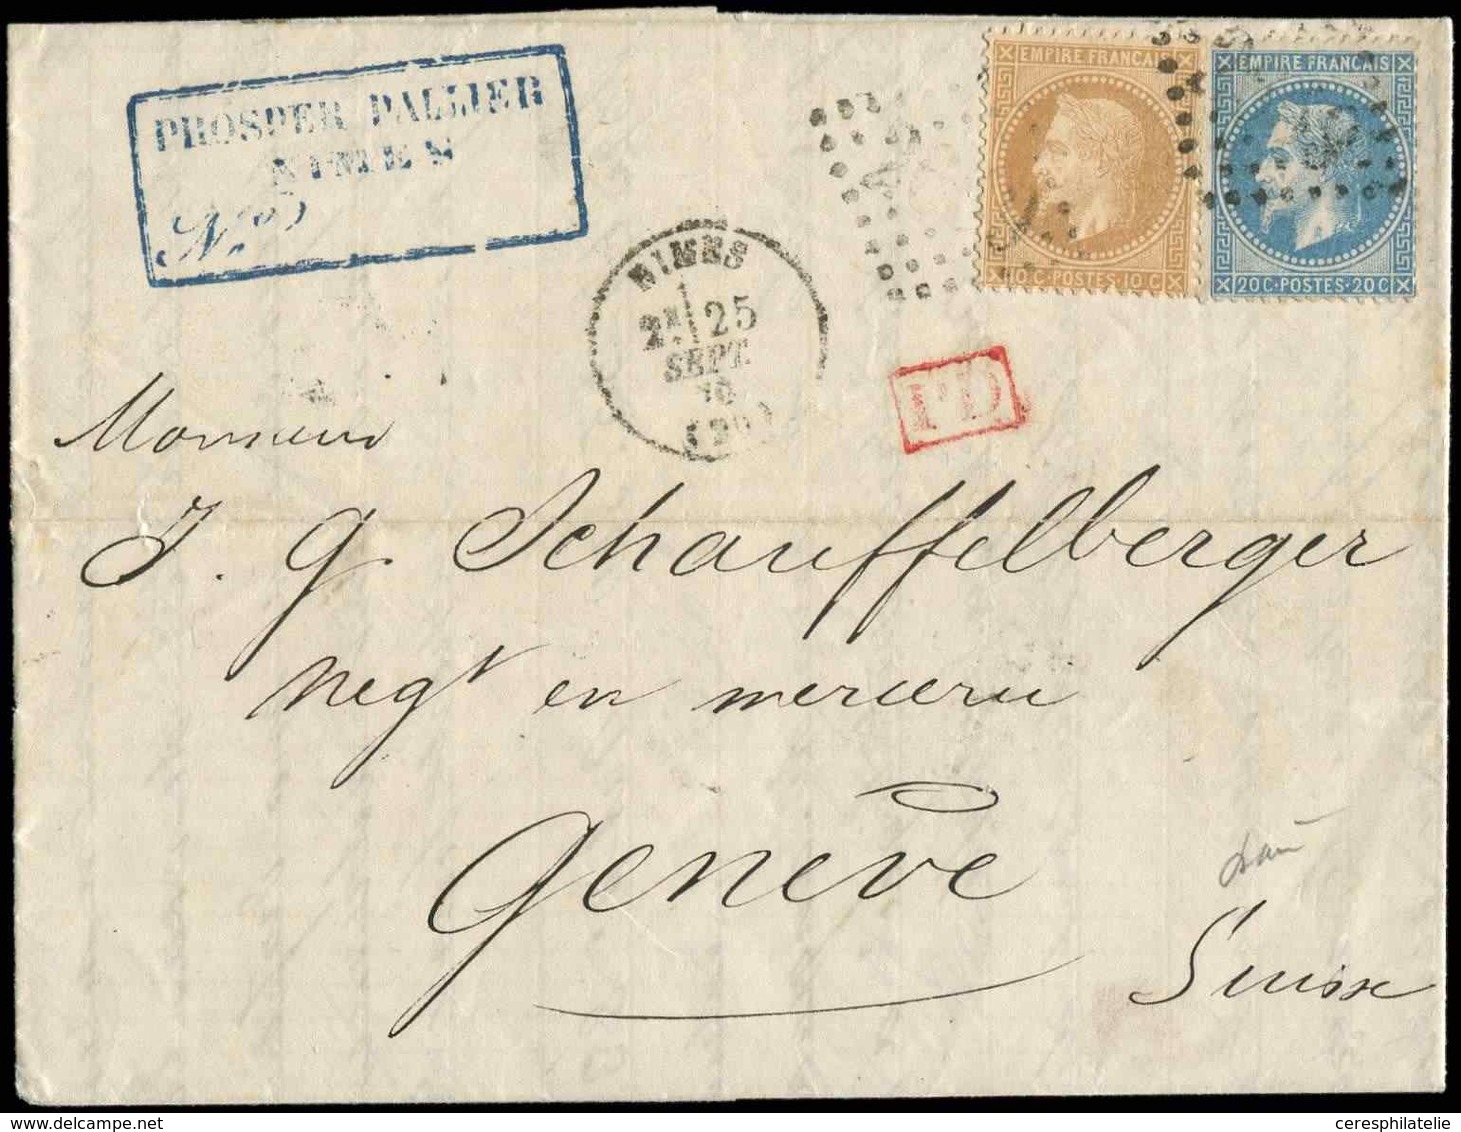 PROSPER PALLIER
NIMES
N.
EMPIRE FRANCAIS
10 C · POSTES · 10 C
EMPIRE FRANCAIS
20 C · POSTES · 20 C
NIMES
2E 25
SEPT.
70
P.D
Monsieur
J. G. Schauffelberger
Negt en mercerie
Genève
Suisse
ceresphilatelie.com